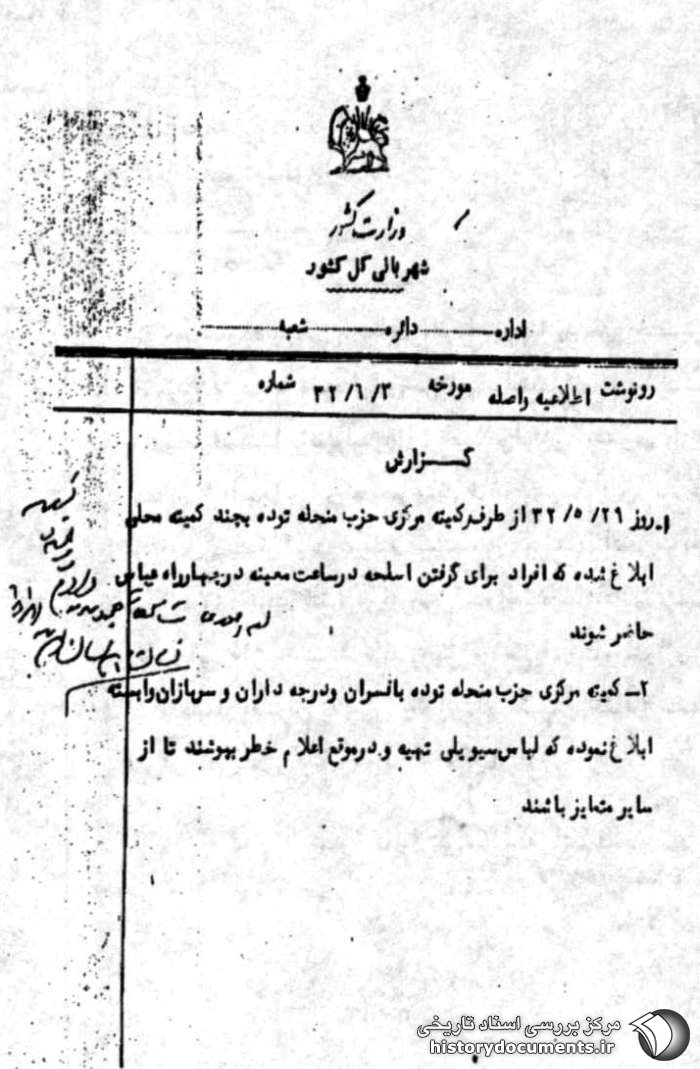 وزارت کشور
شهربانی کل کشور
اداره دائره شعبه
رونوشت اطلاعیه واصله مورخه ۳۲/۶/۳ شماره
گزارش
۱ـ روز ۳۲/۵/۲۹ از طرف کمیته مرکزی حزب منحله توده بچند کمیته محلی
ابلاغ شده که افراد برای گرفتن اسلحه در ساعت معینه در چهارراه عباسی
حاضر شوند
۲ـ کمیته مرکزی حزب منحله توده بافسران و درجه داران و سربازان وابسته
ابلاغ نموده که لباس سیویلی تهیه و در موقع اعلام خطر بپوشند تا از
سایر متمایز باشند
مرکز بررسی اسناد تاریخی
historydocuments.ir